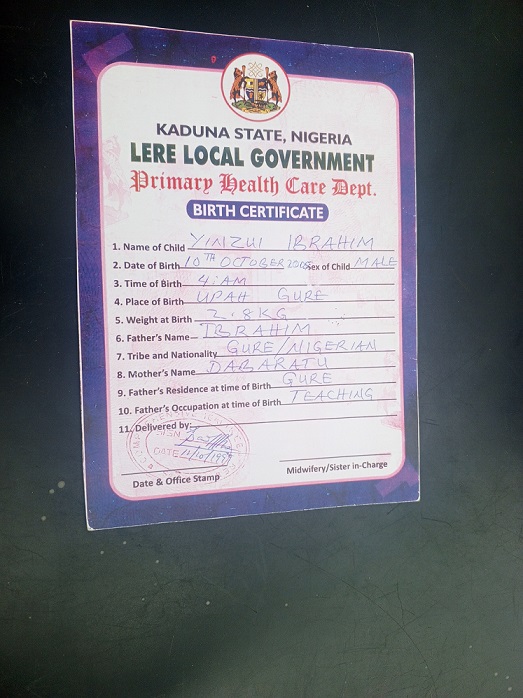 KADUNA STATE, NIGERIA
LERE LOCAL GOVERNMENT
Primary Health Care Dept.
BIRTH CERTIFICATE
1. Name of Child YINZUI IBRAHIM
2. Date of Birth 10TH OCTOBER Sex of Child MALE
3. Time of Birth 4:AM
4. Place of Birth UPAH GURE
5. Weight at Birth 2.8KG
6. Father's Name IBRAHIM
7. Tribe and Nationality GURE/NIGERIAN
8. Mother's Name DABARATU
9. Father's Residence at time of Birth GURE
10. Father's Occupation at time of Birth TEACHING
11. Delivered by:
SIGN
DATE
Date & Office Stamp Midwifery/Sister in-Charge